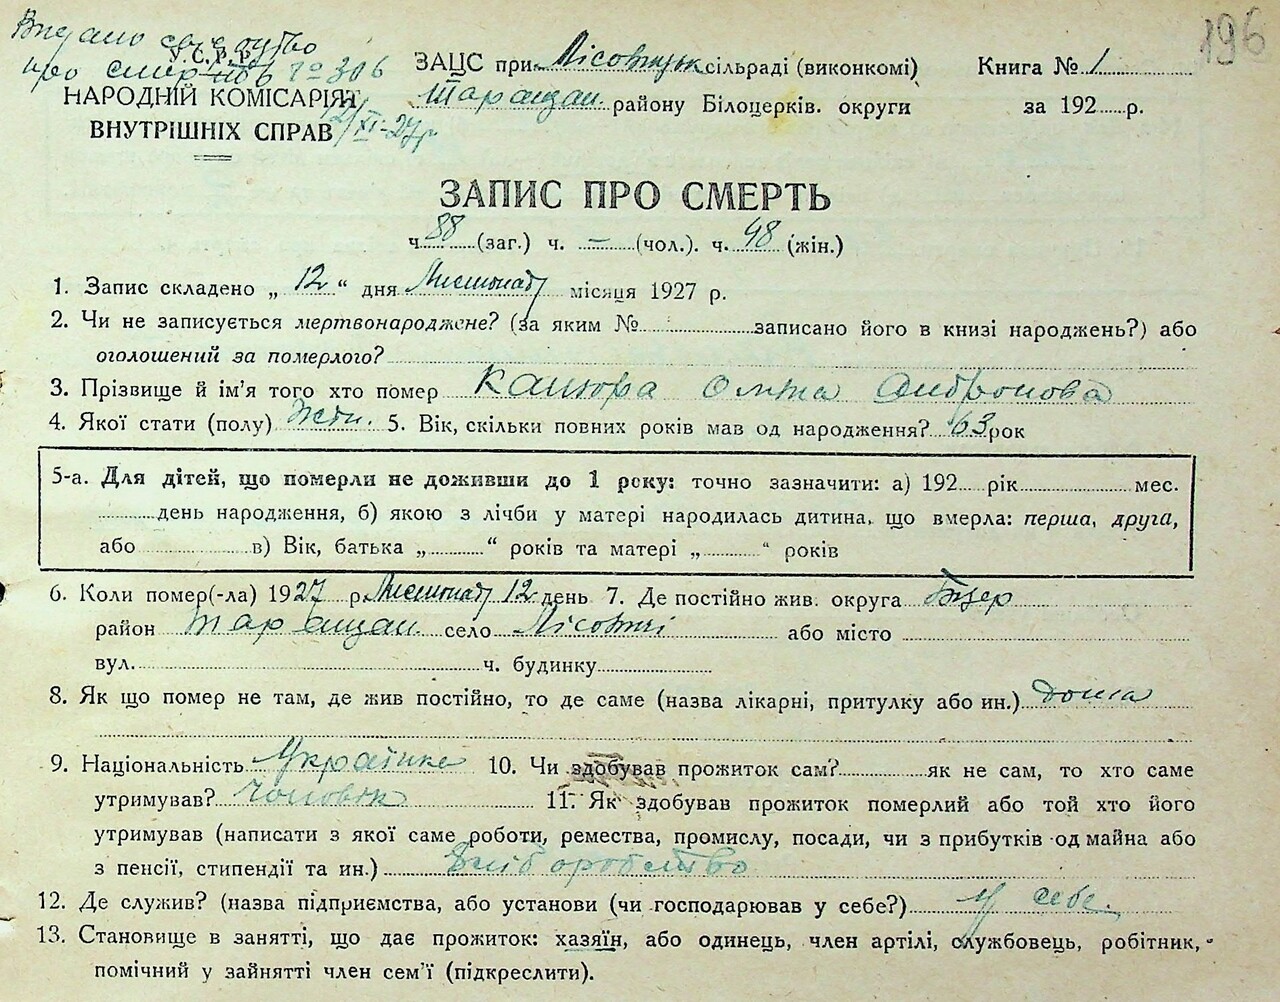 Видано свідоцтво
про смерть № 306
12/XI-27р
196
У.С.Р.Р.
НАРОДНІЙ КОМІСАРІЯТ
ВНУТРІШНІХ СПРАВ
ЗАЦС при Лісовицьк сільраді (виконкомі)
Таращан. району Білоцерків. округи
Книга № 1
за 192 р.
ЗАПИС ПРО СМЕРТЬ
ч. 88 (заг.) ч. – (чол.). ч. 48 (жін.)
1. Запис складено „ 12 “ дня Листопад місяця 1927 р.
2. Чи не записується мертвонароджене? (за яким № записано його в книзі народжень?) або
оголошений за померлого?
3. Прізвище й ім’я того хто помер
4. Якої стати (полу) Жін. 5. Вік, скільки повних років мав од народження? 63 рок
5-а. Для дітей, що померли не доживши до 1 року: точно зазначити: а) 192 рік мес.
день народження, б) якою з лічби у матері народилась дитина, що вмерла: перша, друга,
або в) Вік, батька „ “ років та матері „ “ років
6. Коли помер(-ла) 1927 р. Листопад 12 день 7. Де постійно жив. округа Б/цер
район Таращан. село Лісовичі або місто
вул. ч. будинку
8. Як що помер не там, де жив постійно, то де саме (назва лікарні, притулку або ин.) дома
9. Національність Українка 10. Чи здобував прожиток сам? як не сам, то хто саме
утримував? чоловік 11. Як здобував прожиток померлий або той хто його
утримував (написати з якої саме роботи, ремества, промислу, посади, чи з прибутків од майна або
з пенсії, стипендії та ин.) хліборобство
12. Де служив? (назва підприємства, або установи (чи господарював у себе?) у себе.
13. Становище в занятті, що дає прожиток: хазяїн, або одинець, член артілі, службовець, робітник,
помічний у зайнятті член сем’ї (підкреслити).